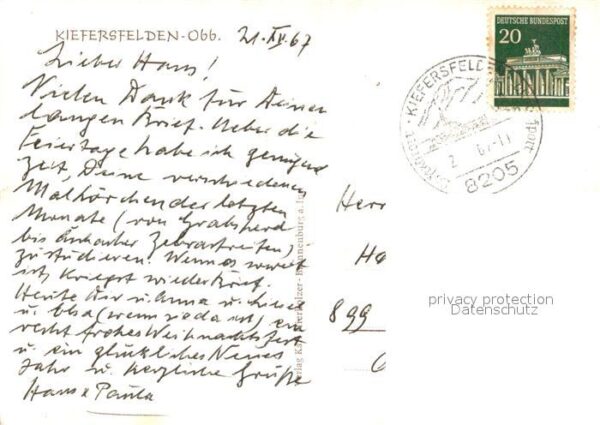 KIEFERSFELDEN-Obb. 21.XII.67
Lieber Hans!
Vielen Dank für Deinen
langen Brief. Ueber die
Feiertage habe ich genügend
Zeit, Deine verschiedenen
der letzten
Monate (von
bis Zebrastreifen)
zu studieren. Wenn es soweit
ist, kriegst wieder Brief.
Heute Dir u. Anna u.
u. (wenn da ist) ein
recht frohes Weihnachtsfest
u. ein glückliches Neues
Jahr u. herzliche Grüße
Hans & Paula
DEUTSCHE BUNDESPOST
20
KIEFERSFELDEN
8205
Herr
899
privacy protection
Datenschutz